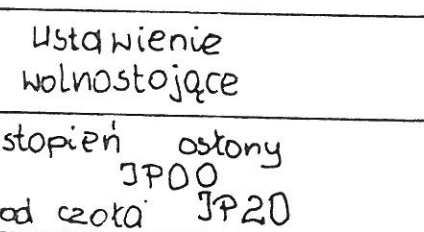 Ustawienie
wolnostojące
stopień osłony
IP00
od czoła IP20